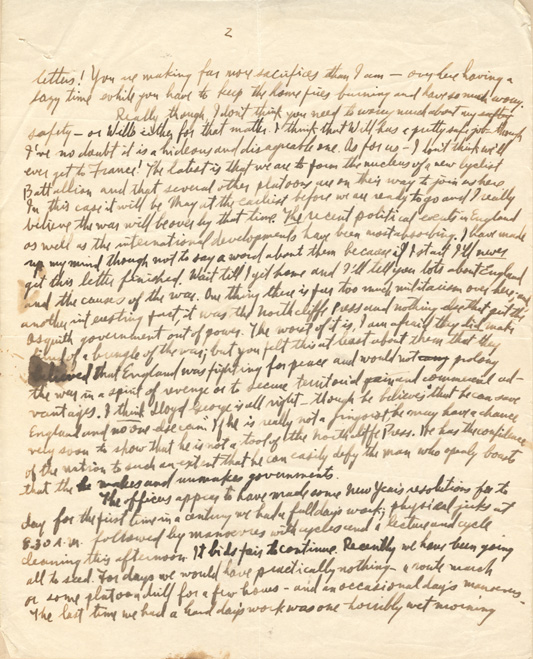 2
letters! You are making far more sacrifices than I am — over here having a
lazy time while you have to keep the home fires burning and have so much worry.
Really though, I don't think you need to worry much about my
safety — or Will's either for that matter. I think that Will has a pretty safe job though
I've no doubt it is a hideous and disagreeable one. As for us — I don't think we'll
ever get to France! The latest is that we are to form the nucleus of a new Cyclist
Battallion and that several other platoons are on their way to join us here.
In this case it will be May at the earliest before we are ready to go and I really
believe the war will be over by that time. The recent political events in England
as well as the international developments have been most absorbing. I have made
up my mind though not to say a word about them because if I start I'll never
get this letter finished. Wait till I get home and I'll tell you lots about England
and the causes of the war. One thing there is far too much militarism over here, and
another interesting fact, it was the Northcliffe Press and nothing else that got the
Asquith government out of power. The worst of it is, I am afraid they did make
kind of a bungle of the war; but you felt this at least about them that they
believed that England was fighting for peace and would not prolong
the war in a spirit of revenge or to secure territorial gain and commercial ad-
vantages. I think Lloyd George is all right — though he believes that he can save
England and no one else can. If he is really not a jingoist he may have a chance
very soon to show that he is not a tool of the Northcliffe Press. He has the confidence
of the nation to such an extent that he can easily defy the man who openly boasts
that he makes and unmakes governments.
The officers appear to have made some New Year's resolutions for to
day for the first time in a century we had a full day's work; physical jerks at
8.30 A.M. followed by manoevres with cycles and a lecture and cycle
cleaning this afternoon. It bids fair to continue. Recently we have been going
all to seed. For days we would have practically nothing — a route march
or some platoon drill for a few hours — and an occasional day's manoevres.
The last time we had a hard day's work was one horribly wet morning